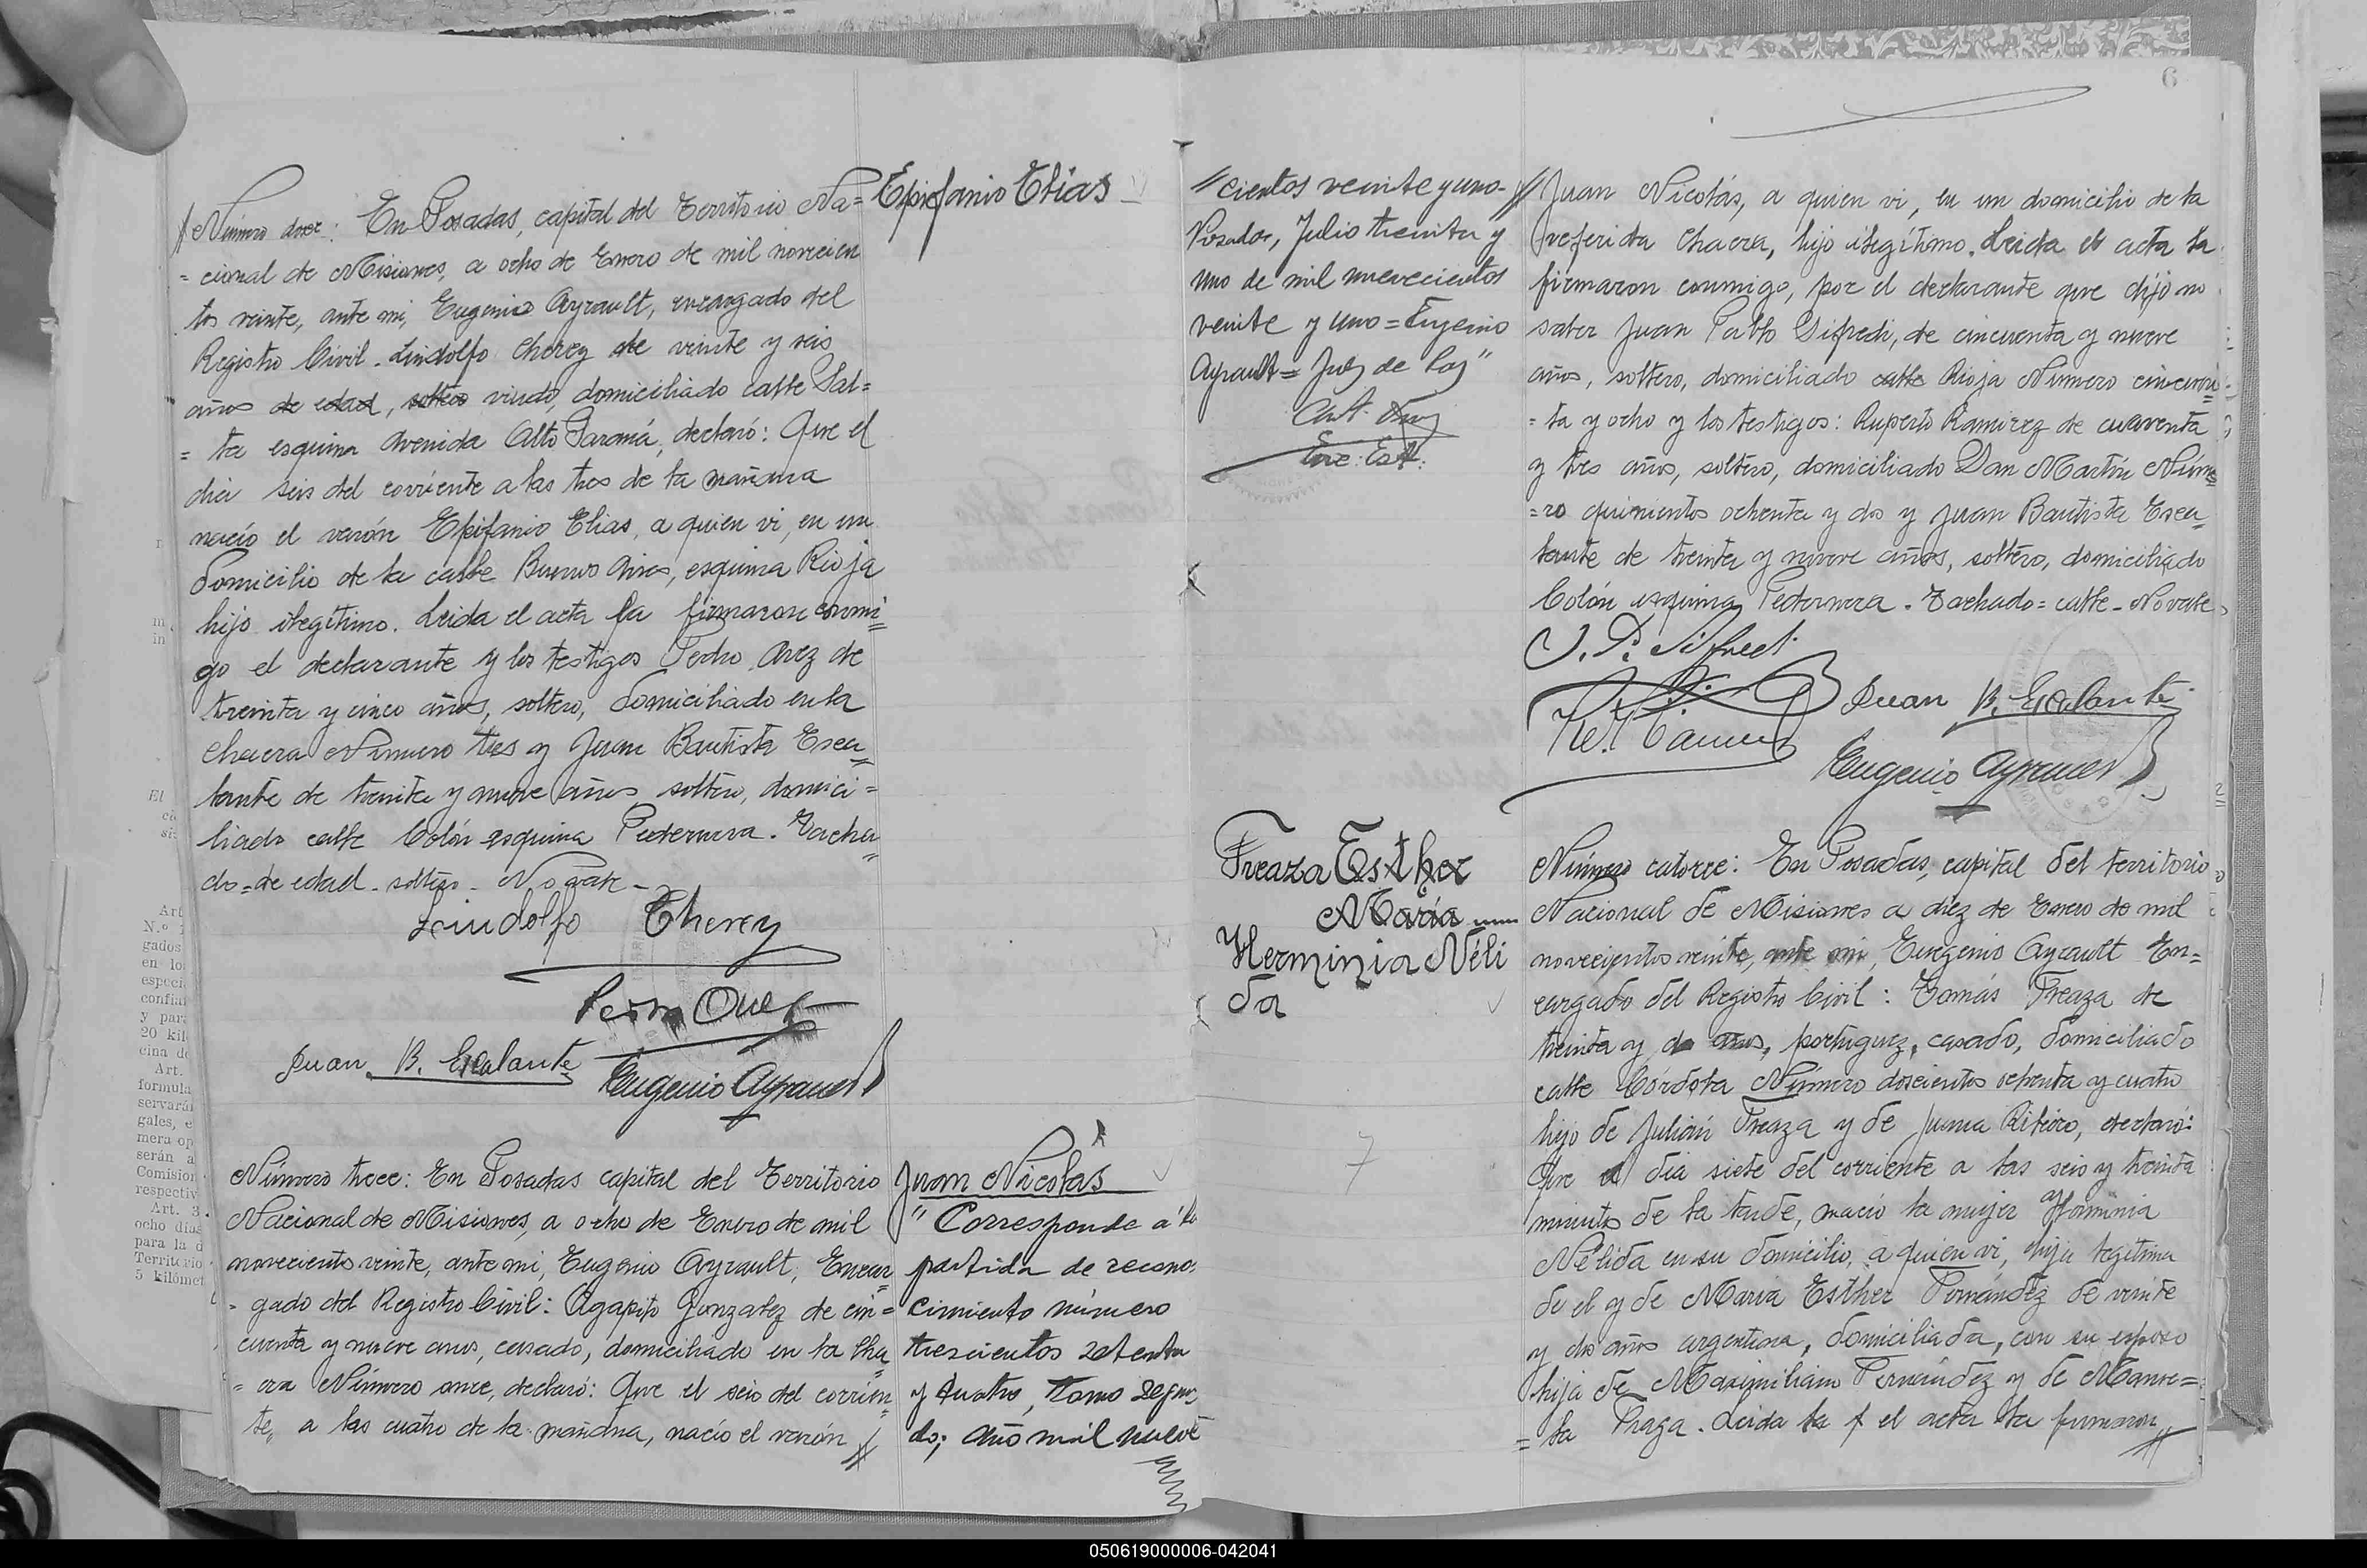 Número doce: En Posadas, capital del Territorio Na=
= cional de Misiones, a ocho de Enero de mil novecien
tos veinte, ante mi, Eugenio Ayrault, encargado del
Registro Civil. Lindolfo Cherey de veinte y seis
años de edad, soltero viudo, domiciliado calle Sal=
= ta esquina Avenida Alto Paraná, declaró: Que el
dia seis del corriente a las tres de la mañana
nació el varón Epifanio Elias, a quien vi, en un
domicilio de la calle Buenos Aires, esquina Rioja
hijo ilegítimo. Leida el acta la firmaron conmi=
go el declarante y los testigos Pedro de
treinta y cinco años, soltero, domiciliado en la
Chacra Número tres y Juan Bautista Esca=
lante de treinta y nueve años soltero, domici=
liado calle Colón esquina Pedernera. Tacha=
do=de edad - soltero - No vale -
Lindolfo Cherey
Pedro
Juan B. Escalante
Eugenio Ayrault
Número trece: En Posadas capital del Territorio
Nacional de Misiones, a ocho de Enero de mil
novecientos veinte, ante mi, Eugenio Ayrault, Encar=
= gado del Registro Civil: Agapito Gonzalez de cin=
cuenta y nueve años, casado, domiciliado en la Cha=
= cra Número once, declaró: Que el seis del corrien=
te, a las cuatro de la mañana, nació el varón //
Epifanio Elias
Juan Nicolás
" Corresponde a la
partida de recono-
cimiento número
trescientos setenta
y cuatro, tomo segun-
do; año mil nueve
6
"cientos veinte y uno-
Posadas, Julio treinta y
uno de mil nuevecientos
veinte y uno = Eugenio
Ayrault = Juez de Paz"
// Juan Nicolás, a quien vi, en un domicilio de la
referida Chacra, hijo ilegítimo. Leida el acta la
firmaron conmigo, por el declarante que dijo no
saber Juan Pablo Sifredi, de cincuenta y nueve
años, soltero, domiciliado calle Rioja Número cincuen=
= ta y ocho y los testigos: Ruperto Ramirez de cuarenta
y tres años, soltero, domiciliado San Martín Núme=
=ro quinientos ochenta y dos y Juan Bautista Esca=
lante de treinta y nueve años, soltero, domiciliado
Colón esquina Pedernera. Tachado = calle - No vale
J. P. Sifredi
Juan B. Escalante
Eugenio Ayrault
Freaza Esther
María
Herminia Néli
da
7
Número catorce: En Posadas, capital del territorio
Nacional de Misiones a diez de Enero de mil
novecientos veinte, ante mi, Eugenio Ayrault En=
cargado del Registro Civil: Tomás Freaza de
treinta y dos años, portuguez, casado, domiciliado
calle Córdoba Número doscientos ochenta y cuatro
hijo de Julián Freaza y de Juana Ribeiro, declaró:
Que el dia siete del corriente a las seis y treinta
minutos de la tarde, nació la mujer Herminia
Nélida en su domicilio, a quien vi, hija legítima
de el y de María Esther Fernández de veinte
y dos años argentina, domiciliada, con su esposo
hija de Maximiliano Fernández y de Manue=
= la Fraga. Leida la f el acta la firmaron //
050619000006-042041